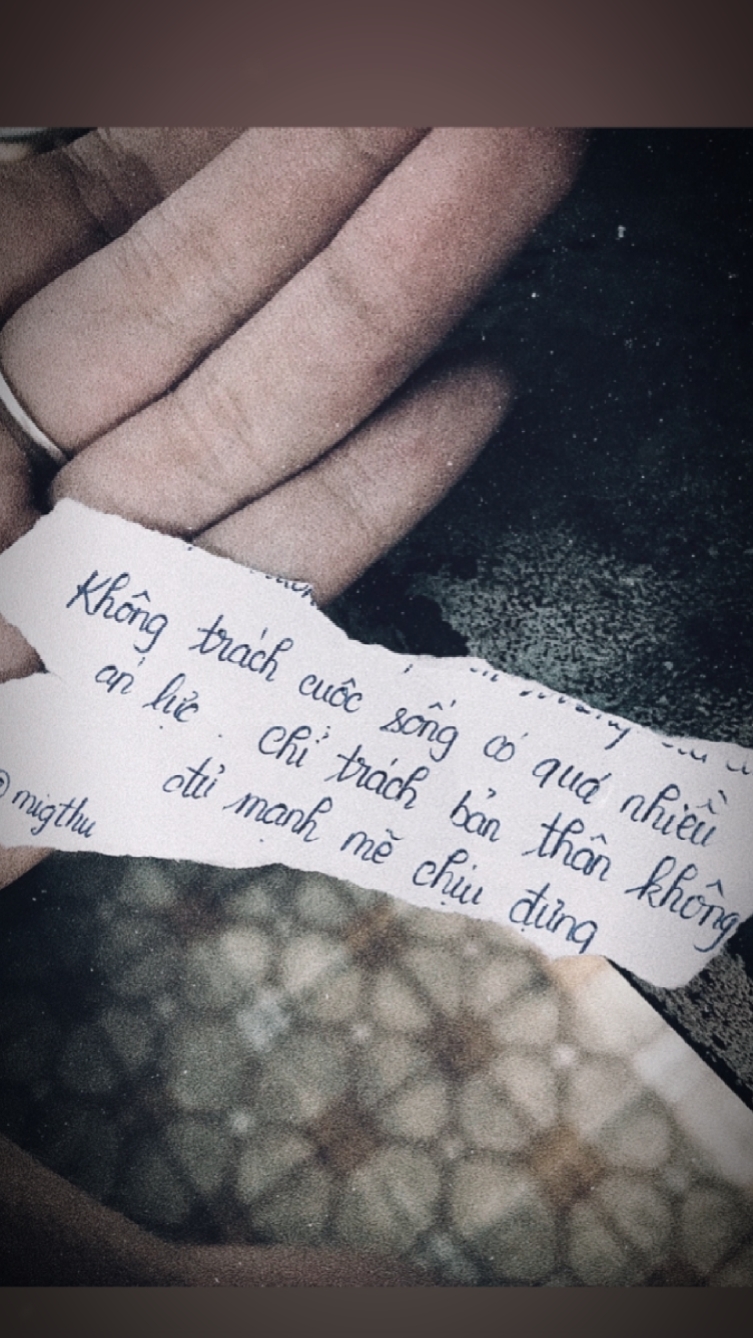 Không trách cuộc sống có quá nhiều
áp lực. chỉ trách bản thân không
đủ mạnh mẽ chịu đựng
@migthu